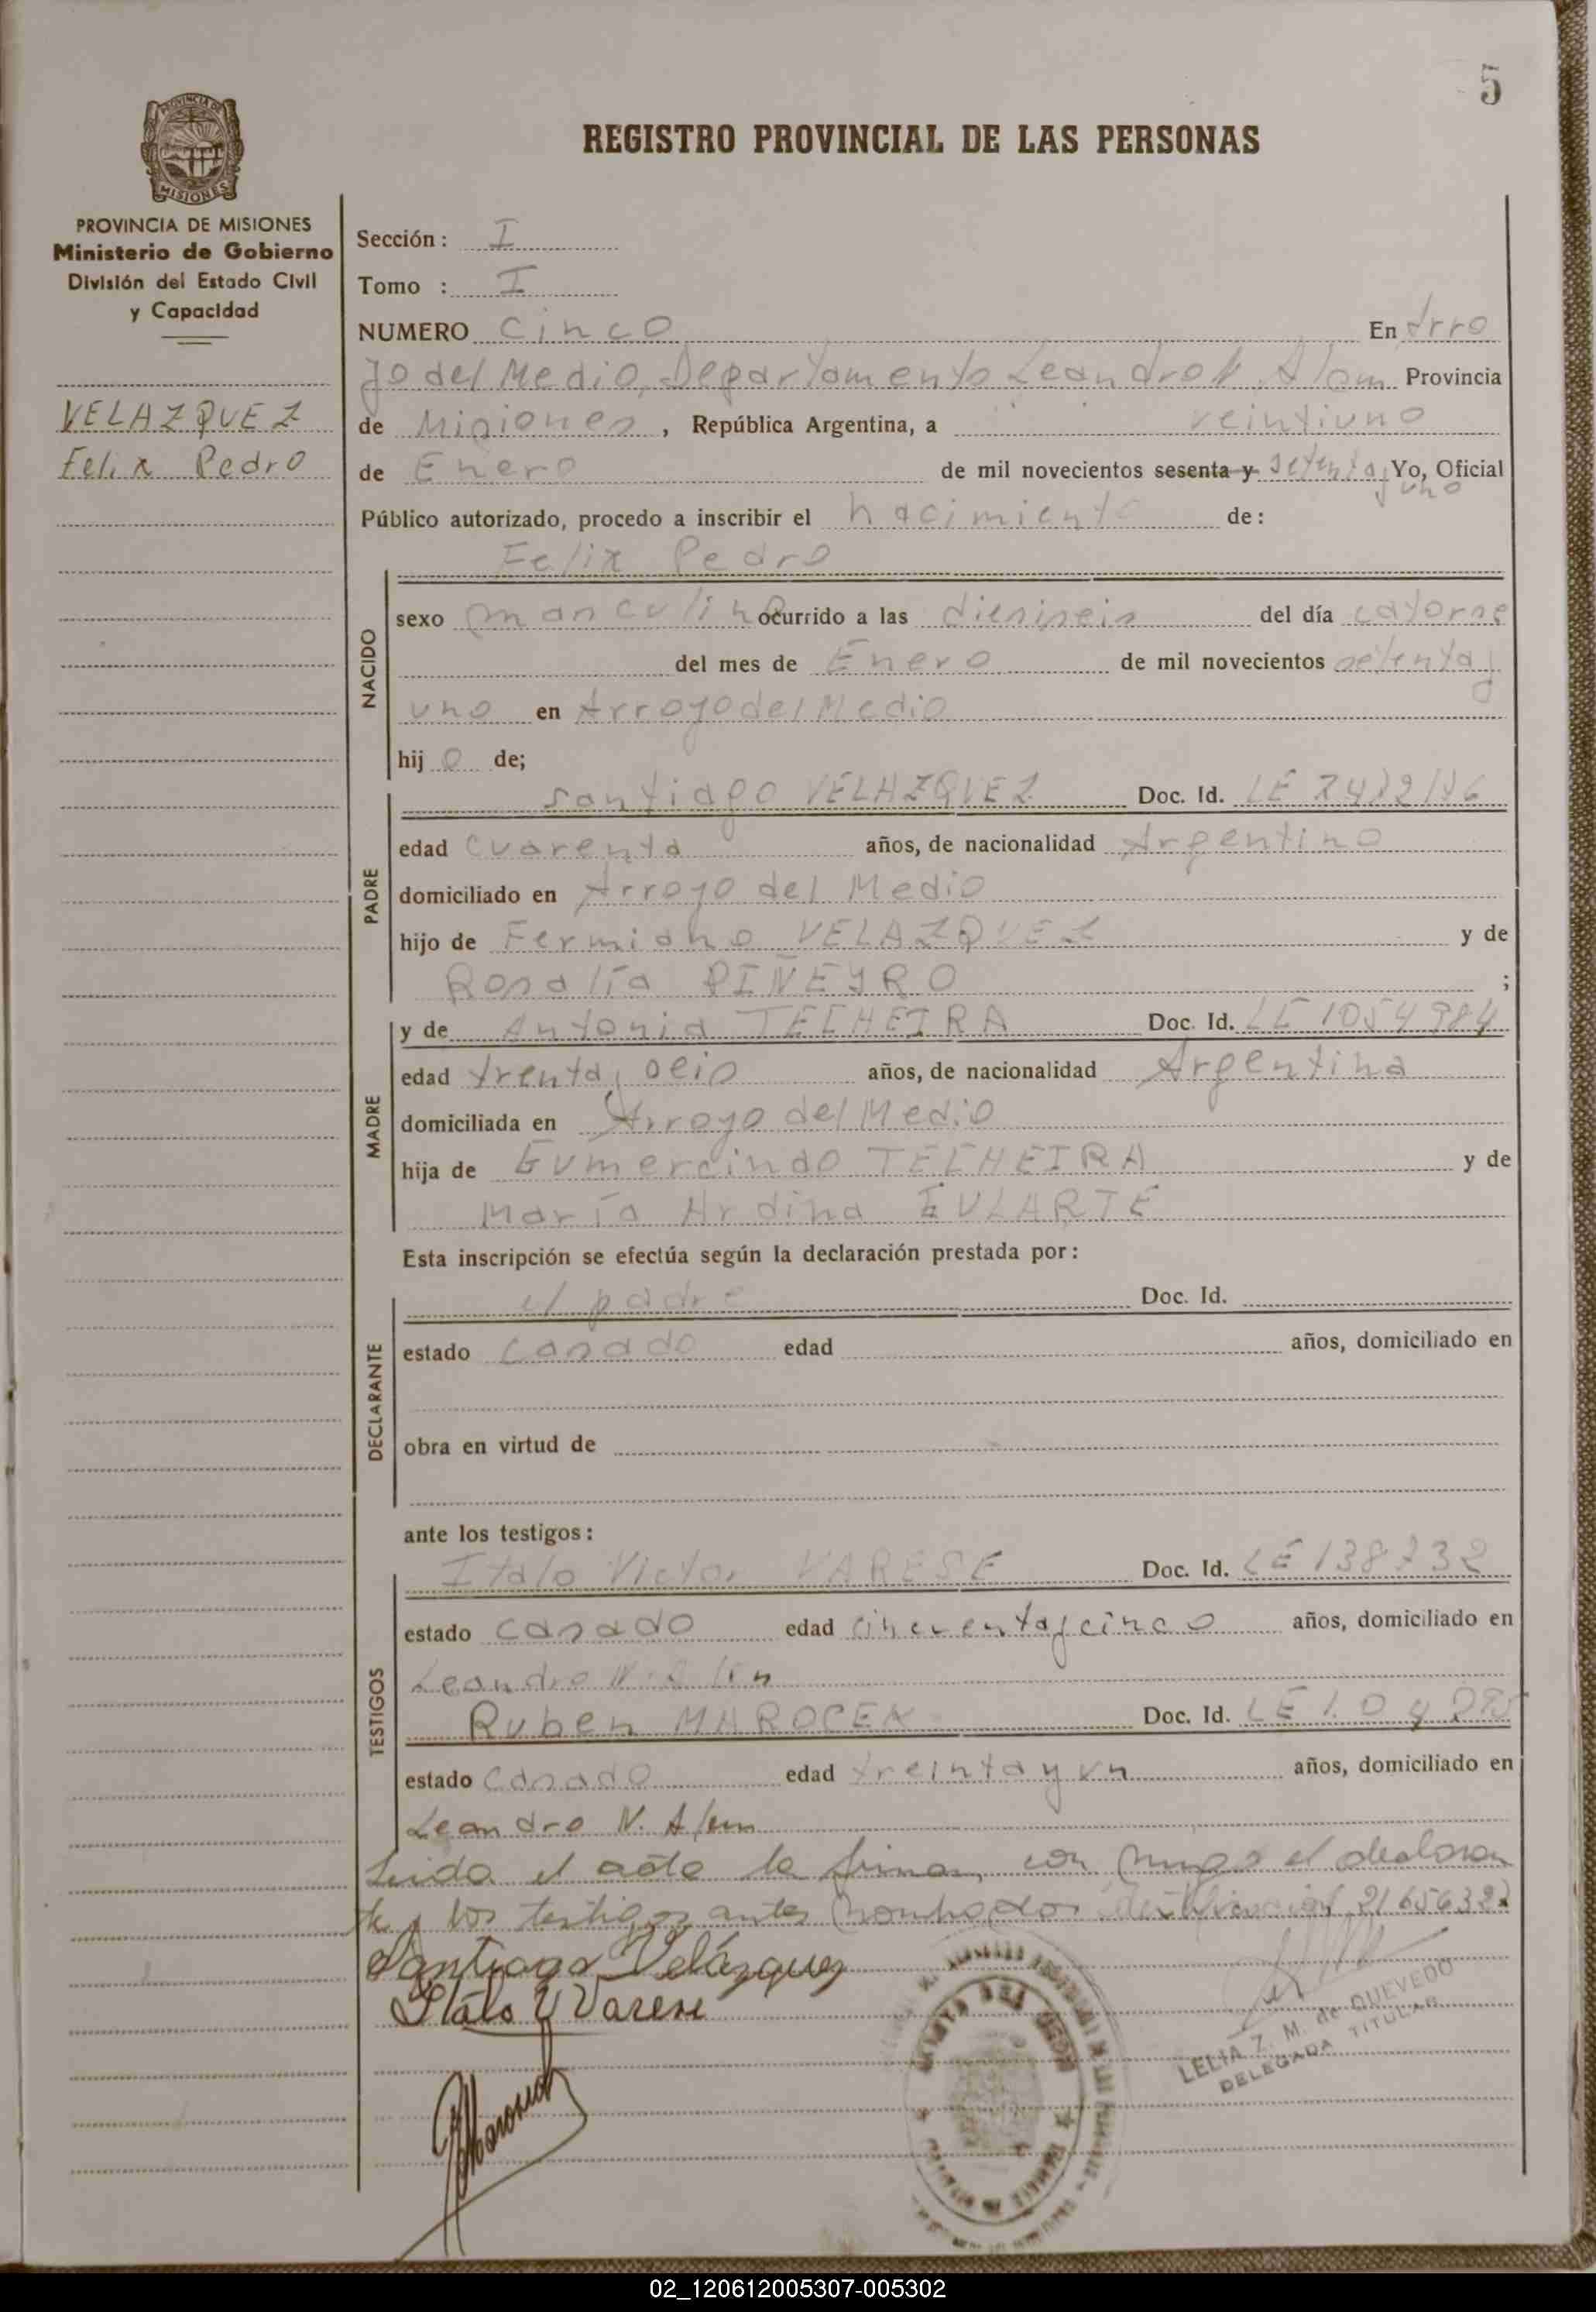 5
PROVINCIA DE MISIONES
REGISTRO PROVINCIAL DE LAS PERSONAS
PROVINCIA DE MISIONES
Ministerio de Gobierno
División del Estado Civil
y Capacidad
VELAZQUEZ
Felix Pedro
Sección : I
Tomo : I
NUMERO Cinco En Arro
yo del Medio, Departamento Leandro N. Alem Provincia
de Misiones , República Argentina, a veintiuno
de Enero de mil novecientos sesenta y setenta y Yo, Oficial
uno
Público autorizado, procedo a inscribir el nacimiento de :
Felix Pedro
NACIDO
sexo masculino ocurrido a las dieciseis del día catorce
del mes de Enero de mil novecientos setenta y
uno en Arroyo del Medio
hij o de;
PADRE
Santiago VELAZQUEZ Doc. Id. LE
edad cuarenta años, de nacionalidad Argentino
domiciliado en Arroyo del Medio
hijo de Fermiano VELAZQUEZ y de
Rosalía PIÑEYRO ;
MADRE
y de Antonia TECHEIRA Doc. Id. LE 1054984
edad trenta, años, de nacionalidad Argentina
domiciliada en Arroyo del Medio
hija de Gumercindo TECHEIRA y de
María Ardina GULARTE
Esta inscripción se efectúa según la declaración prestada por :
DECLARANTE
el padre Doc. Id.
estado casado edad años, domiciliado en
obra en virtud de
ante los testigos :
TESTIGOS
Italo Victor VARESE Doc. Id. LE 138732
estado casado edad cincuenta y cinco años, domiciliado en
Leandro N. Alem
Ruben Doc. Id. LE
estado casado edad treinta y un años, domiciliado en
Leandro N. Alem
Leida el acta la firman con migo el declaran
te y los testigos antes nombrados
Santiago Velázquez
Italo V Varese
LELIA Z. M. de QUEVEDO
DELEGADA TITULAR
02_120612005307-005302